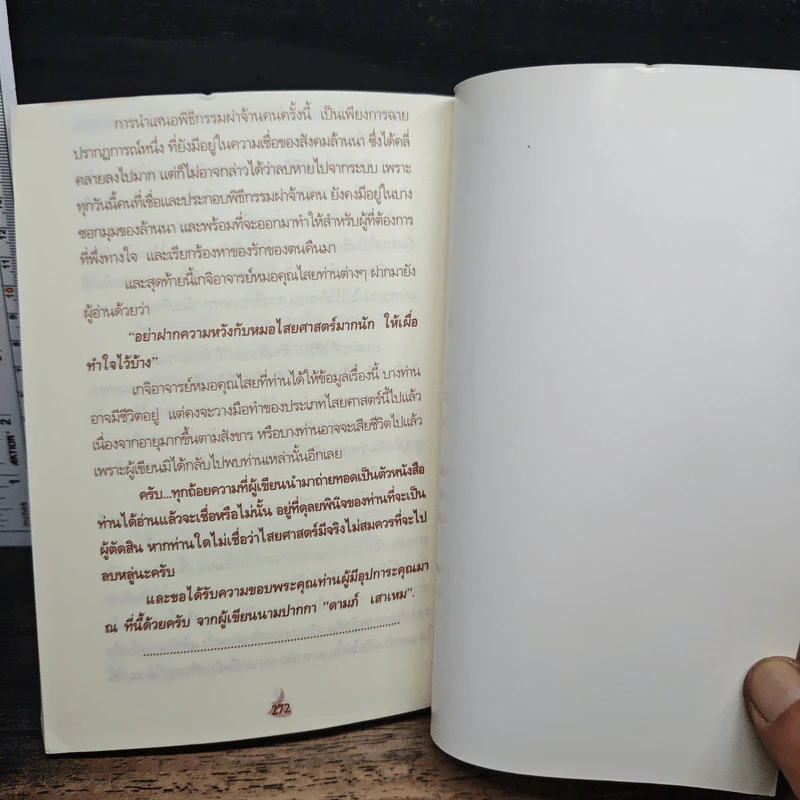 การนำเสนอพิธีกรรมผ่าจ้านคนครั้งนี้ เป็นเพียงการฉาย
ปรากฏการณ์หนึ่ง ที่ยังมีอยู่ในความเชื่อของสังคมล้านนา ซึ่งได้คลี่
คลายลงไปมาก แต่ก็ไม่อาจกล่าวได้ว่าลบหายไปจากระบบ เพราะ
ทุกวันนี้คนที่เชื่อและประกอบพิธีกรรมผ่าจ้านคน ยังคงมีอยู่ในบาง
ซอกมุมของล้านนา และพร้อมที่จะออกมาทำให้สำหรับผู้ที่ต้องการ
ที่พึ่งทางใจ และเรียกร้องหาของรักของตนคืนมา
และสุดท้ายนี้เกจิอาจารย์หมอคุณไสยท่านต่างๆ ฝากมายัง
ผู้อ่านด้วยว่า
“อย่าฝากความหวังกับหมอไสยศาสตร์มากนัก ให้เผื่อ
ทำใจไว้บ้าง”
เกจิอาจารย์หมอคุณไสยที่ท่านได้ให้ข้อมูลเรื่องนี้ บางท่าน
อาจมีชีวิตอยู่ แต่คงจะวางมือทำของประเภทไสยศาสตร์นี้ไปแล้ว
เนื่องจากอายุมากขึ้นตามสังขาร หรือบางท่านอาจจะเสียชีวิตไปแล้ว
เพราะผู้เขียนมิได้กลับไปพบท่านเหล่านั้นอีกเลย
ครับ...ทุกถ้อยความที่ผู้เขียนนำมาถ่ายทอดเป็นตัวหนังสือ
ท่านได้อ่านแล้วจะเชื่อหรือไม่นั้น อยู่ที่ดุลยพินิจของท่านที่จะเป็น
ผู้ตัดสิน หากท่านใดไม่เชื่อว่าไสยศาสตร์มีจริงไม่สมควรที่จะไป
ลบหลู่นะครับ
และขอได้รับความขอบพระคุณท่านผู้มีอุปการะคุณมา
ณ ที่นี้ด้วยครับ จากผู้เขียนนามปากกา “ดามภ์ เสาเหม”.
272